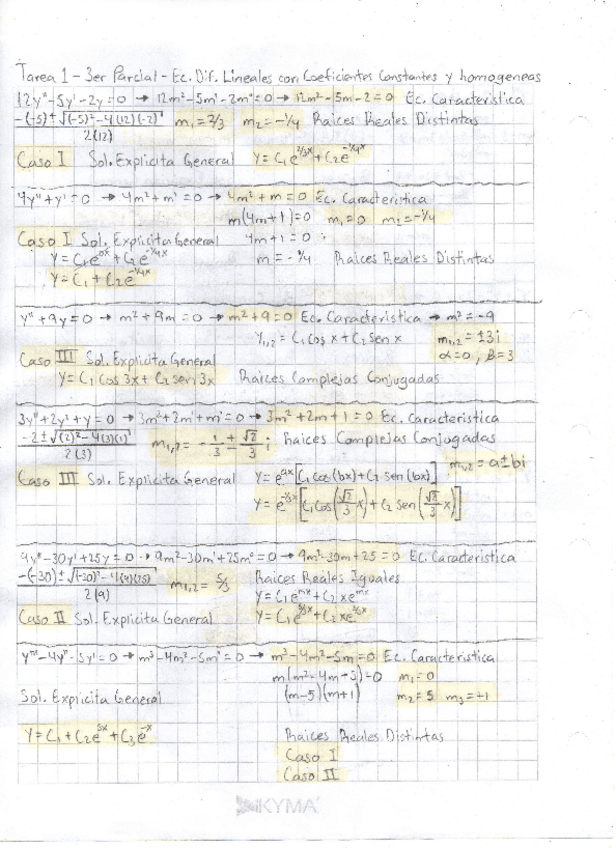 Tarea 1 - 3er Parcial - Ec. Dif. Lineales con Coeficientes Constantes y homogeneas
12y"-5y'-2y=0 → 12m²-5m'-2m°=0 → 12m²-5m-2=0 Ec. Característica
-(-5)±√(-5)²-4(12)(-2) / 2(12) m₁=2/3 m₂=-1/4 Raíces Reales Distintas
Caso I Sol. Explicita General y=C₁e^2/3x+C₂e^-1/4x
4y"+y'=0 → 4m²+m'=0 → 4m²+m=0 Ec. Característica
m(4m+1)=0 m₁=0 m₂=-1/4
Caso I Sol. Explicita General 4m+1=0
y=C₁e^0x+C₂e^-1/4x m=-1/4 Raíces Reales Distintas
y=C₁+C₂e^-1/4x
y"+9y=0 → m²+9m=0 → m²+9=0 Ec. Característica → m²=-9
y₁,₂=C₁Cos x+C₂Sen x m₁,₂=±3i
Caso III Sol. Explicita General α=0, β=3
y=C₁Cos 3x+C₂ sen 3x Raíces Complejas Conjugadas
3y"+2y'+y=0 → 3m²+2m'+m°=0 → 3m²+2m+1=0 Ec. Característica
-2±√(2)²-4(3)(1) / 2(3) m₁,₂=-1/3±√2/3 i Raíces Complejas Conjugadas
m₁,₂=a±bi
Caso III Sol. Explicita General y=e^ax[C₁cos(bx)+C₂sen(bx)]
y=e^-1/3x[C₁Cos(√2/3 x)+C₂ Sen(√2/3 x)]
9y"-30y'+25y=0 → 9m²-30m'+25m°=0 → 9m²-30m+25=0 Ec. Característica
-(-30)±√(-30)²-4(9)(25) / 2(9) m₁,₂=5/3 Raíces Reales Iguales
y=C₁e^mx+C₂xe^mx
Caso II Sol. Explicita General y=C₁e^5/3x+C₂xe^5/3x
y'''-4y"-5y'=0 → m³-4m²-5m'=0 → m³-4m²-5m=0 Ec. Característica
m(m²-4m-5)=0 m₁=0
Sol. Explicita General (m-5)(m+1) m₂=5 m₃=-1
y=C₁+C₂e^5x+C₃e^-x Raíces Reales Distintas
Caso I
Caso II
KYMA